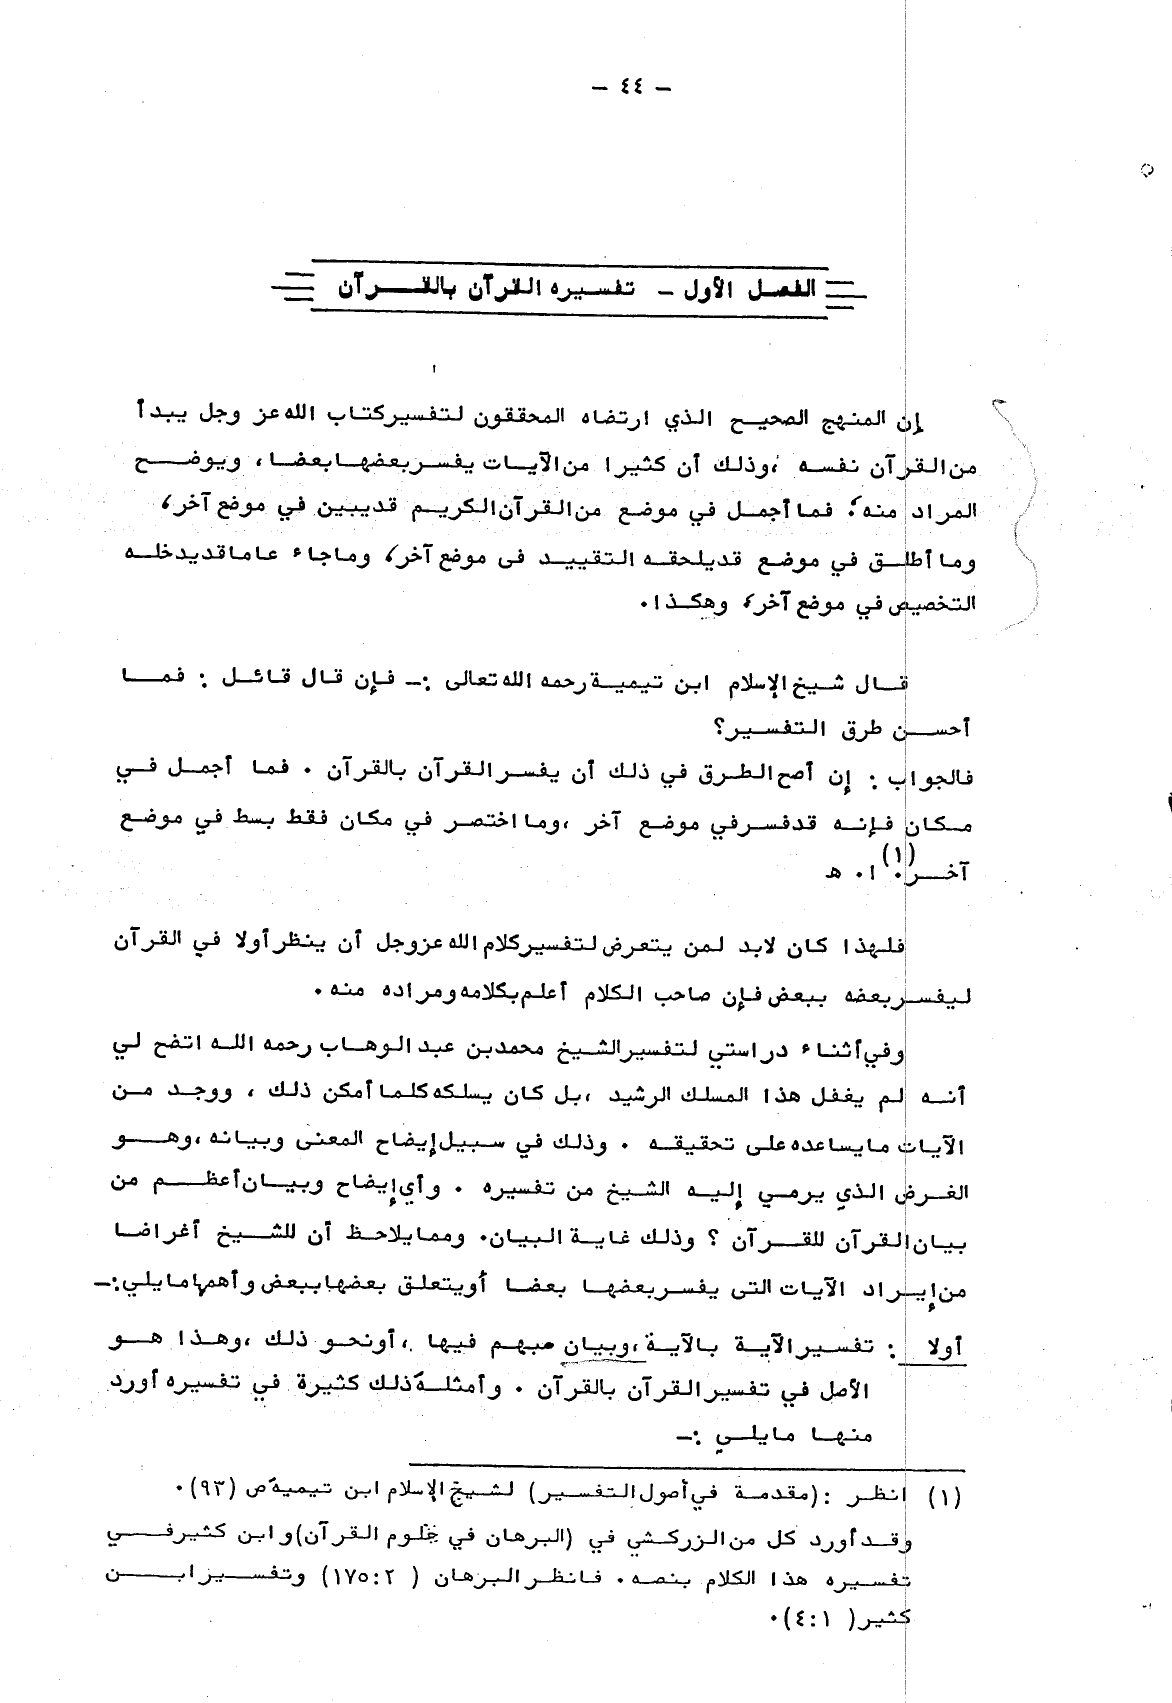 - ٤٤ -
الفصل الأول - تفسيره القرآن بالقرآن
إن المنهج الصحيح الذي ارتضاه المحققون لتفسير كتاب الله عز وجل يبدأ
من القرآن نفسه ، وذلك أن كثيرا من الآيات يفسر بعضها بعضا ، ويوضح
المراد منه ؛ فما أجمل في موضع من القرآن الكريم قد يبين في موضع آخر ،
وما أطلق في موضع قد يلحقه التقييد فى موضع آخر ، وما جاء عاما قد يدخله
التخصيص في موضع آخر ، وهكذا .
قال شيخ الإسلام ابن تيمية رحمه الله تعالى :- فإن قال قائل : فما
أحسن طرق التفسير ؟
فالجواب : إن أصح الطرق في ذلك أن يفسر القرآن بالقرآن . فما أجمل في
مكان فإنه قد فسر في موضع آخر ، وما اختصر في مكان فقط بسط في موضع
آخر .(١) ا . هـ
فلهذا كان لابد لمن يتعرض لتفسير كلام الله عز وجل أن ينظر أولا في القرآن
ليفسر بعضه ببعض فإن صاحب الكلام أعلم بكلامه ومراده منه .
وفي أثناء دراستي لتفسير الشيخ محمد بن عبد الوهاب رحمه الله اتضح لي
أنه لم يغفل هذا المسلك الرشيد ، بل كان يسلكه كلما أمكن ذلك ، ووجد من
الآيات ما يساعده على تحقيقه . وذلك في سبيل إيضاح المعنى وبيانه ، وهو
الغرض الذي يرمي إليه الشيخ من تفسيره . وأي إيضاح وبيان أعظم من
بيان القرآن للقرآن ؟ وذلك غاية البيان . ومما يلاحظ أن للشيخ أغراضا
من إيراد الآيات التى يفسر بعضها بعضا أو يتعلق بعضها ببعض وأهمها ما يلي :-
أولا : تفسير الآية بالآية ، وبيان مبهم فيها ، أو نحو ذلك ، وهذا هو
الأصل في تفسير القرآن بالقرآن . وأمثلة ذلك كثيرة في تفسيره أورد
منها ما يلي :-
(١) انظر : (مقدمة في أصول التفسير) لشيخ الإسلام ابن تيمية ص (٩٣) .
وقد أورد كل من الزركشي في (البرهان في علوم القرآن) وابن كثير في
تفسيره هذا الكلام بنصه . فانظر البرهان ( ١٧٥:٢) وتفسير ابن
كثير ( ٤:١) .